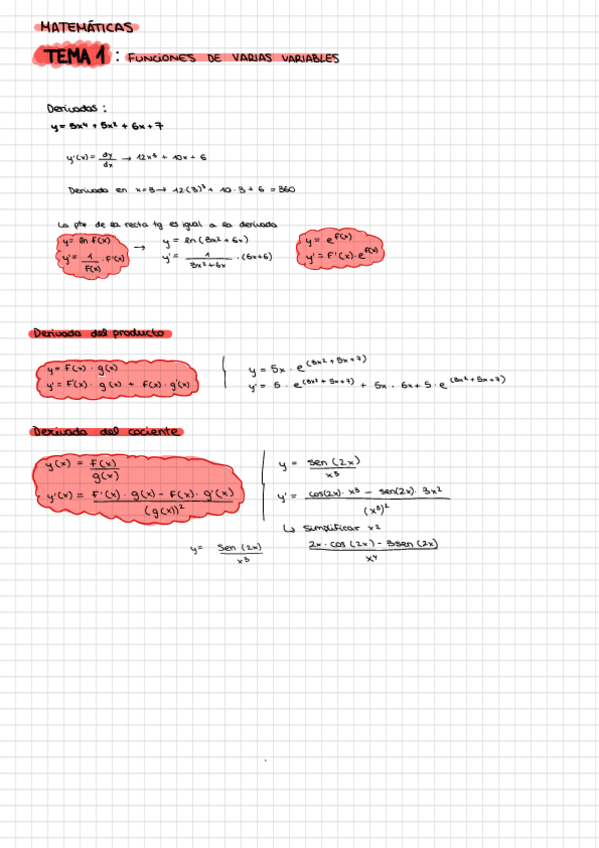 MATEMÁTICAS
TEMA 1 : FUNCIONES DE VARIAS VARIABLES
Derivadas :
y = 3x⁴ + 5x² + 6x + 7
y'(x) = dy/dx → 12x³ + 10x + 6
Derivada en x=3 → 12(3)³ + 10·3 + 6 = 360
La pte de la recta tg es igual a la derivada
y = ln f(x) → y = ln (3x² + 6x) y = e^f(x)
y' = 1/f(x) · f'(x) y' = 1/(3x² + 6x) · (6x+6) y' = f'(x) · e^f(x)
Derivada del producto
y = f(x) · g(x) y = 5x · e^(3x² + 5x + 7)
y' = f'(x) · g(x) + f(x) · g'(x) y' = 5 · e^(3x² + 5x + 7) + 5x · 6x + 5 · e^(3x² + 5x + 7)
Derivada del cociente
y(x) = f(x)/g(x) y = sen (2x)/x³
y'(x) = f'(x) · g(x) - f(x) · g'(x)/(g(x))² y' = cos(2x) · x³ - sen(2x) · 3x²/(x³)²
↳ simplificar x2
y = sen (2x)/x³ 2x · cos (2x) - 3sen (2x)/x⁴